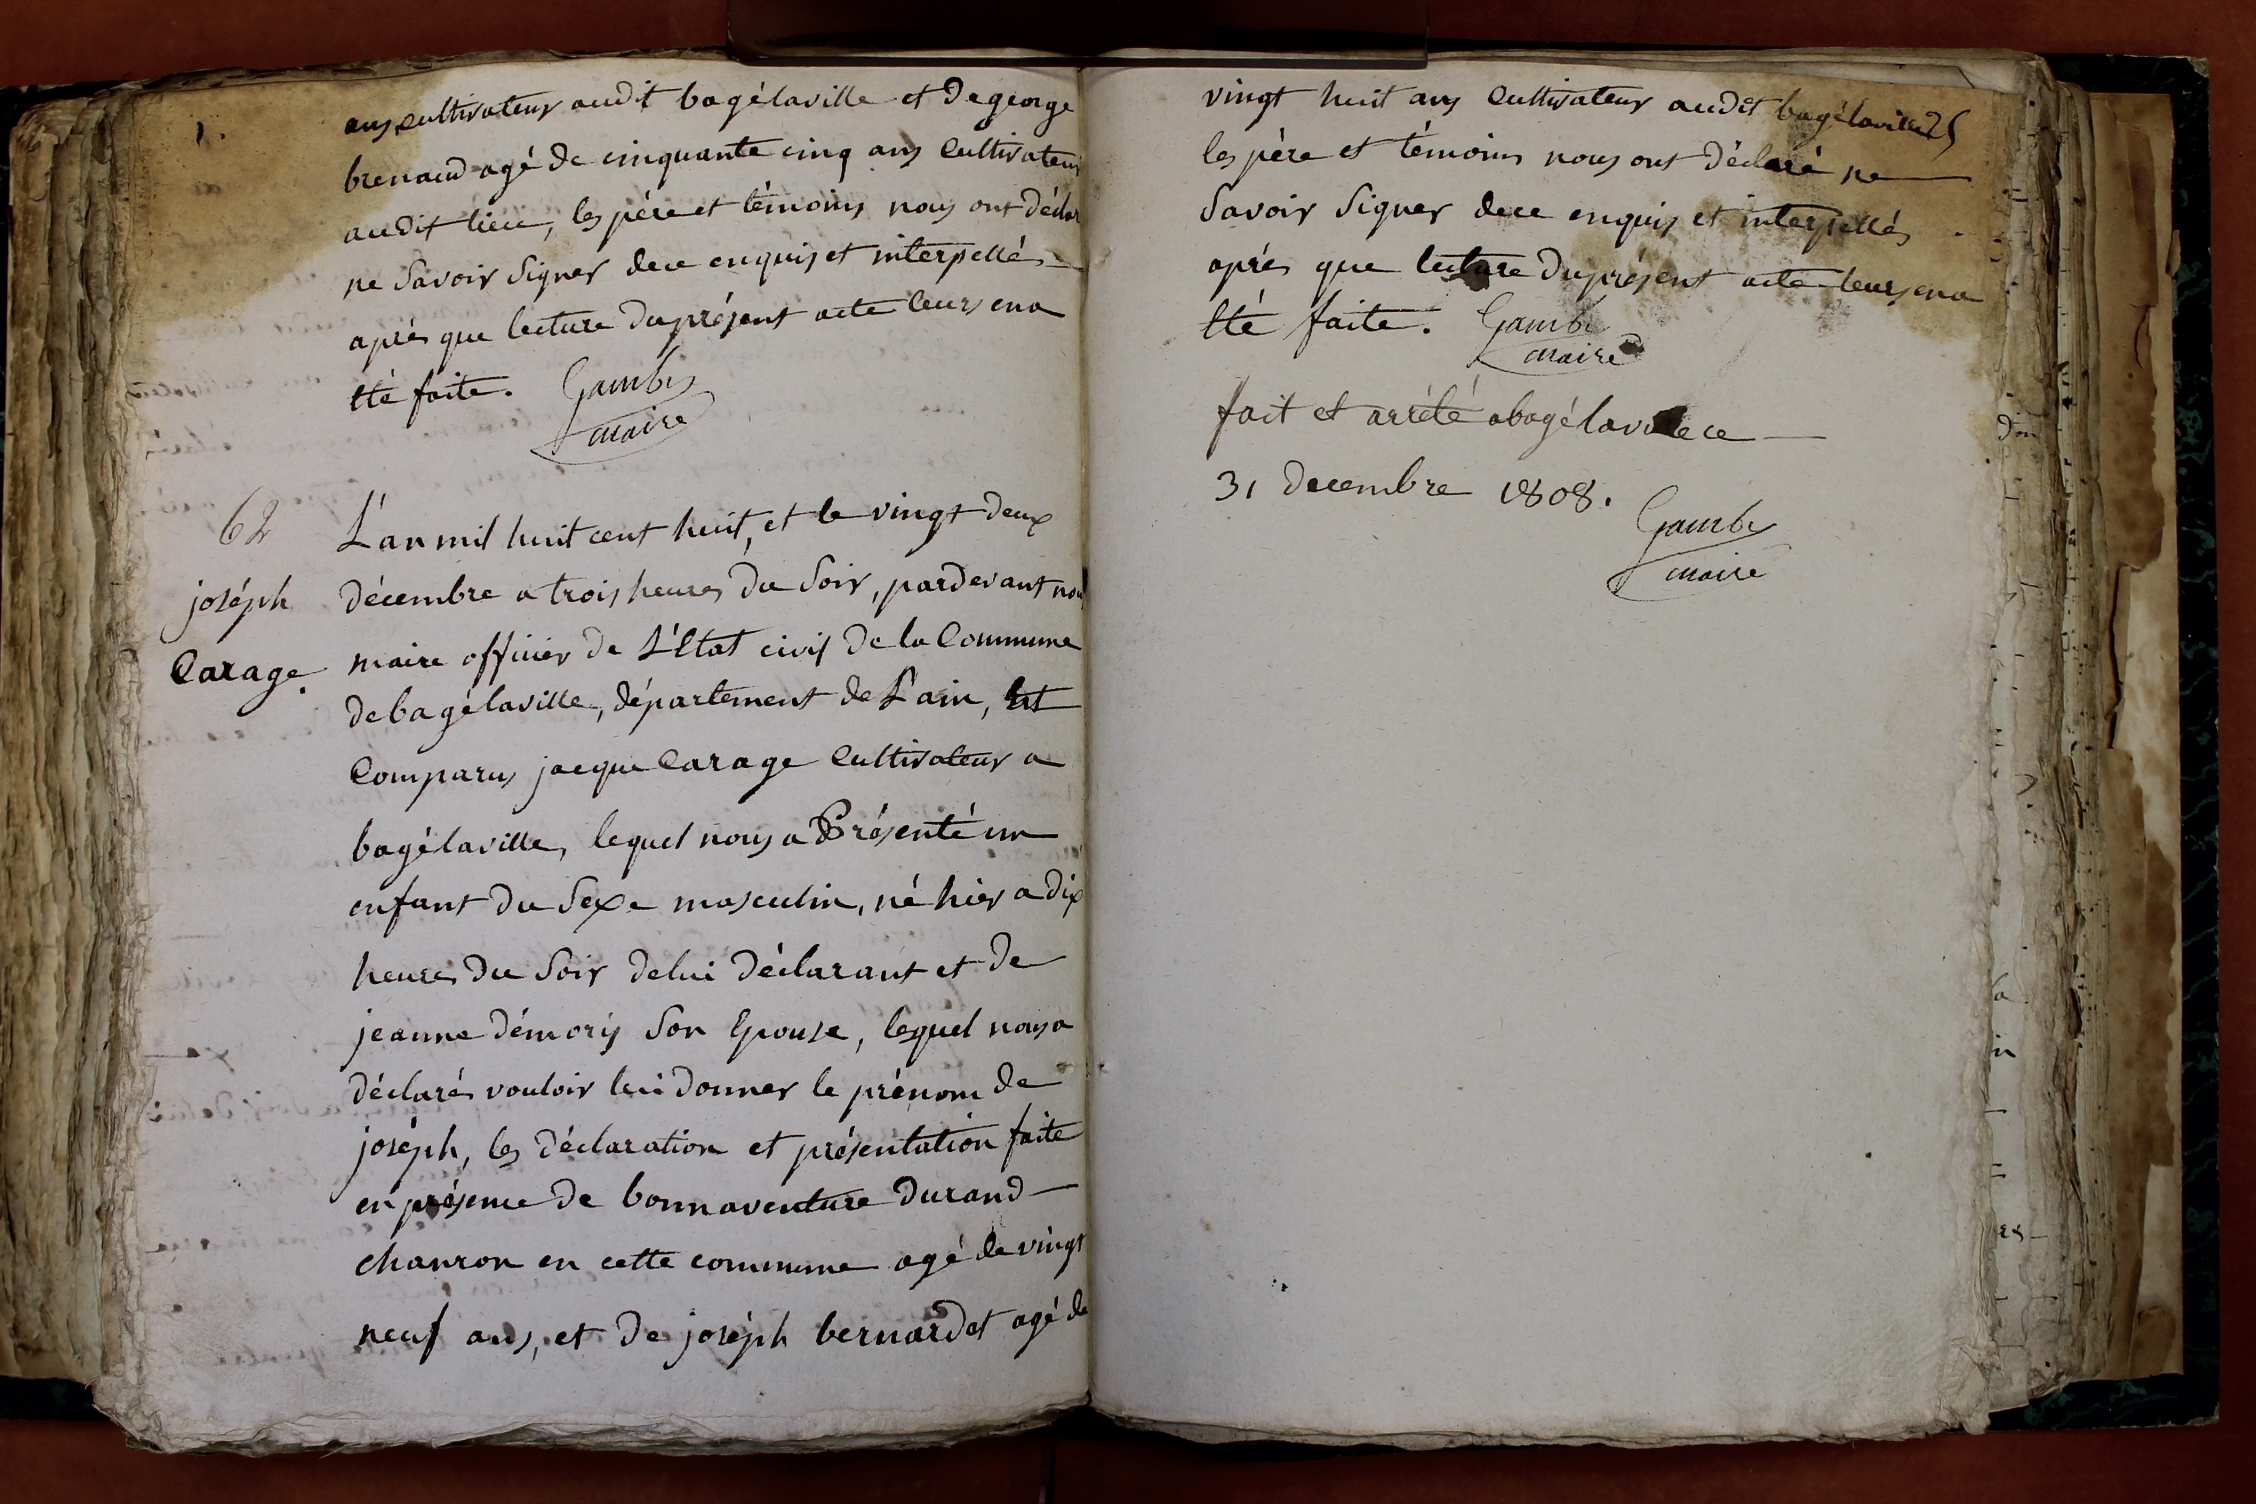 ans, cultivateur audit bagélaville et de george
brenaud agé de cinquante cinq ans cultivateur
audit lieu, les père et témoins nous ont déclar
ne savoir signer dece enquis et interpellés
après que lecture du présent acte leurs en a
été faite. Gambi
maire
62
joséph
Carage.
L'an mil huit cent huit, et le vingt deux
décembre a trois heures du soir, pardevant nous
maire officier de L'Etat civil de la Commune
de bagélaville, département de L'ain, Est
Comparus jacque Carage Cultivateur a
bagélaville, lequel nous a Présenté un
enfant du sexe masculin, né hier a dix
heures du soir de lui déclarant et de
jeanne démoris son Epouse, lequel nous a
déclarés vouloir lui donner le prénom de
joséph, les déclaration et présentation faite
en présence de bonnaventure durand
charron en cette commune agé de vingt
neuf ans, et de joséph bernardet agé de
vingt huit ans Cultivateur audit bagélaville 25
les père et témoins nous ont déclaré ne
savoir signer dece enquis et interpellés
après que lecture du présent acte leurs en a
été faite. Gambi
maire
fait et arrété a bagélaville ce
31 decembre 1808.
Gambi
maire